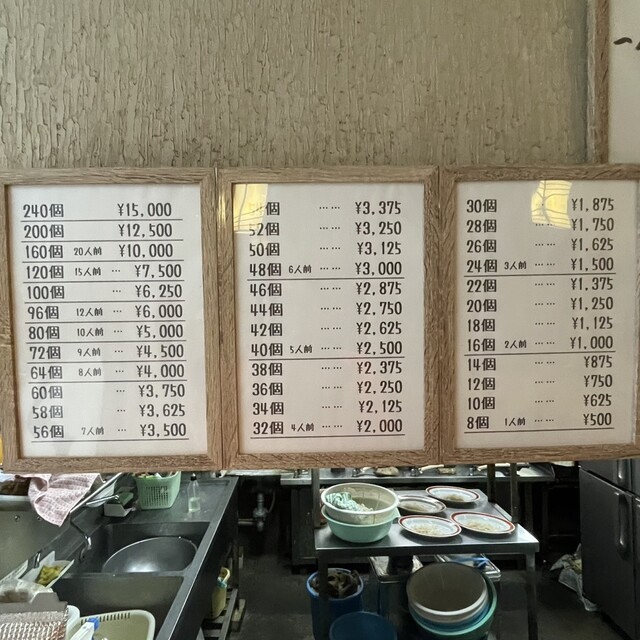 240個 ¥15,000
200個 ¥12,500
160個 20人前 ¥10,000
120個 15人前 … ¥7,500
100個 … ¥6,250
96個 12人前 … ¥6,000
80個 10人前 … ¥5,000
72個 9人前 … ¥4,500
64個 8人前 … ¥4,000
60個 … ¥3,750
58個 … ¥3,625
56個 7人前 … ¥3,500
個 …… ¥3,375
52個 …… ¥3,250
50個 …… ¥3,125
48個 6人前 …… ¥3,000
46個 …… ¥2,875
44個 …… ¥2,750
42個 …… ¥2,625
40個 5人前 …… ¥2,500
38個 …… ¥2,375
36個 …… ¥2,250
34個 …… ¥2,125
32個 4人前 …… ¥2,000
30個 …… ¥1,875
28個 …… ¥1,750
26個 …… ¥1,625
24個 3人前 …… ¥1,500
22個 …… ¥1,375
20個 …… ¥1,250
18個 …… ¥1,125
16個 2人前 …… ¥1,000
14個 …… ¥875
12個 …… ¥750
10個 …… ¥625
8個 1人前 …… ¥500